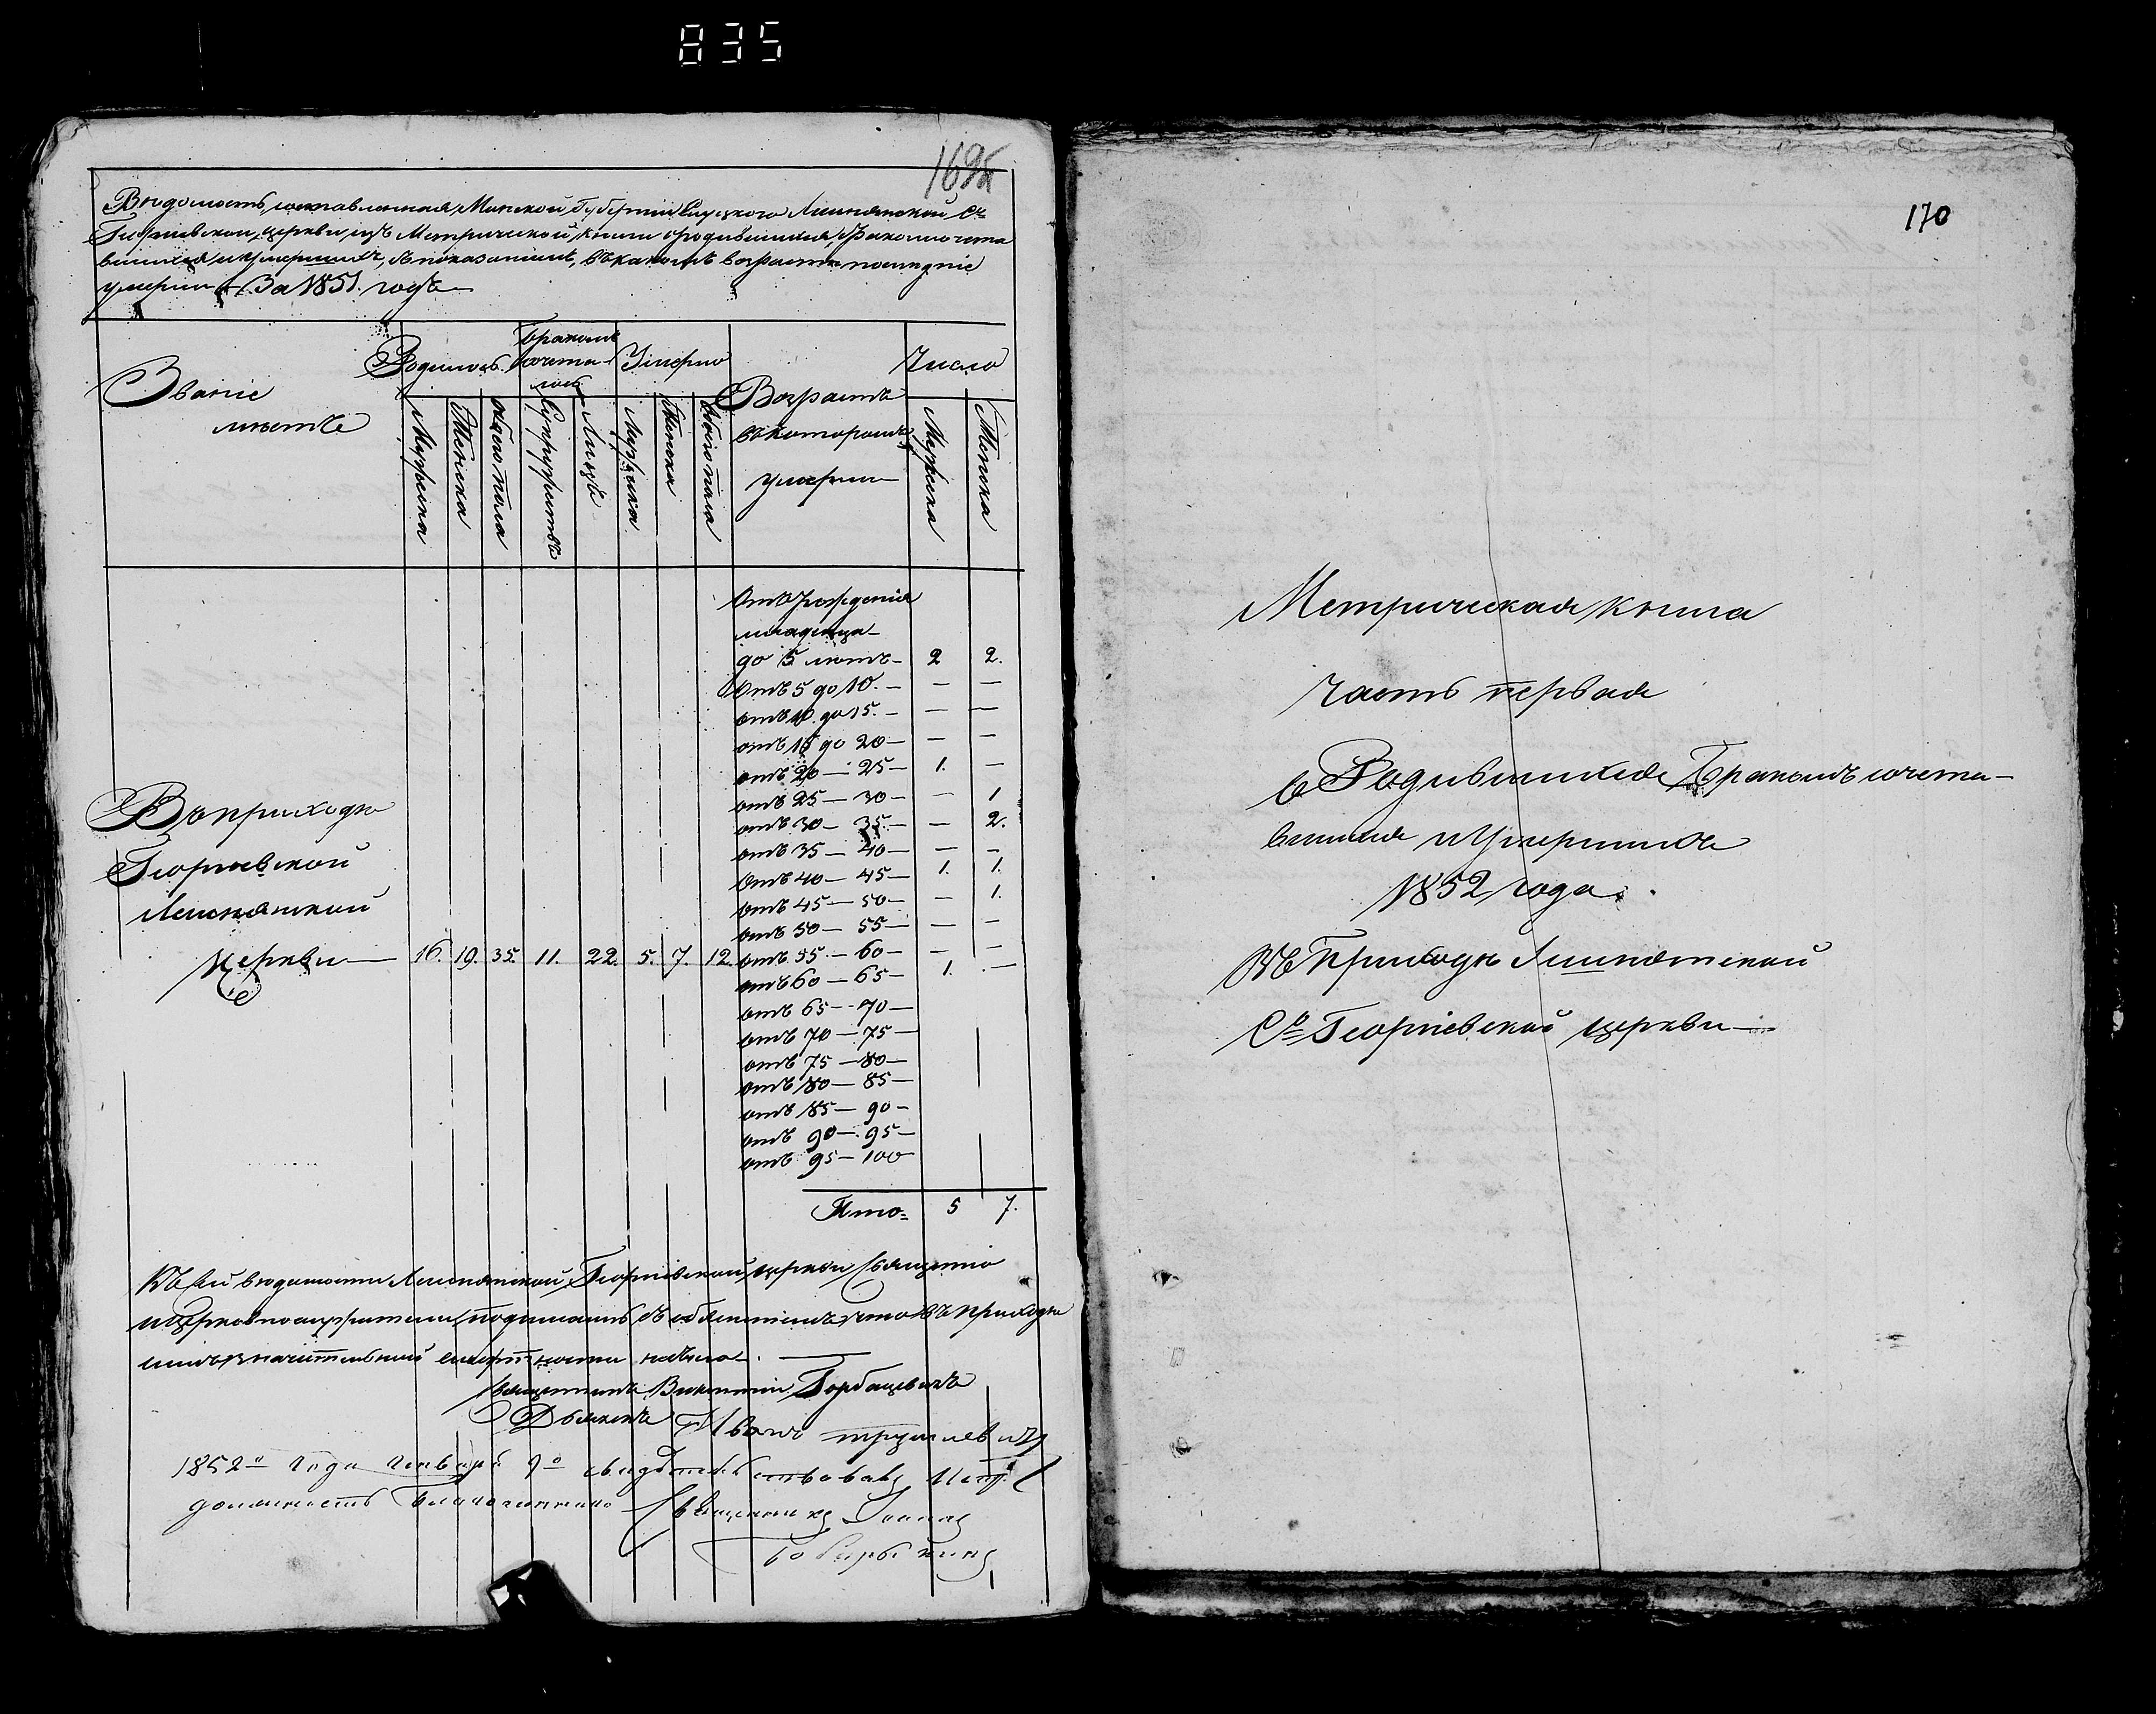 835
169
Вѣдомость, составленная, Минской Губерніи Слуцкого Лешнянской Св.
Георгіевской, церкви, изъ Метрической, книги о родившихся, бракомъ сочета
вшихся и умершихъ, съ показаніемъ, въ какомъ возрастѣ послѣдніе
умерли За 1851. годъ
Званіе
мѣстъ
Родилось
Бракомъ
сочета-
лось
Умерло
Возрастъ
въ которомъ
умерли
Число
Мужеска
Женска
обоего пола
Супружествъ
Лицъ
Мужеска
Женска
обоего пола
Мужеска
Женска
Отъ рожденія
младенца
до 5 лѣтъ — 2 2.
Отъ 5 до 10. — — —
отъ 10. до 15. — — —
отъ 15 до 20 — — —
отъ 20 — 25 — 1. —
отъ 25 — 30 — — 1
отъ 30 — 35. — — 2.
отъ 35 — 40 — — —
Отъ 40 — 45 — 1. 1.
отъ 45 — 50 — — 1.
отъ 50 — 55 — — —
Въ приходѣ
Георгіевской
Лешнянской
Церкви — 16. 19. 35. 11. 22. 5. 7. 12. отъ 55 — 60 — — —
отъ 60 — 65 — 1. —
отъ 65 — 70 —
отъ 70 — 75 —
отъ 75 — 80 —
отъ 80 — 85 —
отъ 85 — 90 —
отъ 90 — 95 —
отъ 95 — 100
Итого 5 7.
Къ сей вѣдомости Лешнянской, Георгіевской, церкви Священно
и Церковнослужители, подписались съ объясненіемъ что въ приходѣ
симъ значительной смертности небыло —
Священникъ Викентій Горбацевичъ
Дьячекъ Иванъ
1852го Года Генваря 9о свидѣтельствовалъ Испр.
должность Благочиннаго Священникъ Іоаннъ
170
Метрическая книга
Часть первая
О Родившихся Бракомъ сочета-
вшихся и Умершихъ
1852 года.
Въ Приходѣ Лешнянской
Св. Георгіевской церкви —